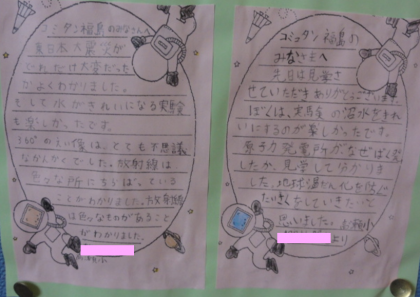 コミュタン福島のみなさんへ
東日本大震災が
どれだけ大変だった
かよくわかりました。
そして水がきれいになる実験
も楽しかったです。
360°の
は、とても不思議
なかんかくでした。放射線は
な所にちらばっている
ことがわかりました。放射線
は色々なものがあること
がわかりました。
コミュタン福島の
みなさまへ
先日は見学さ
せていただきありがとうございます。
ぼくは、実験の
水をきれ
いにするのが楽しかったです。
原子力発電所がなぜばく発
したか、見学して分かりま
した。地球温だん化を防ぐ
をしていきたいと
思いました。
より